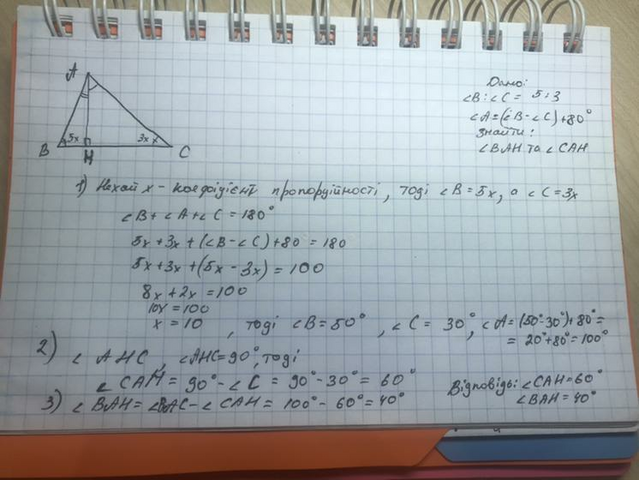 A
B
5x
H
3x
C
Дано:
∠B:∠C = 5:3
∠A=(∠B-∠C)+80°
Знайти:
∠BAH та ∠CAH
1) Нехай x - коефіцієнт пропорційності, тоді ∠B=5x, а ∠C=3x
∠B+∠A+∠C=180°
5x+3x+(∠B-∠C)+80=180
5x+3x+(5x-3x)=100
8x+2x=100
10x=100
x=10, тоді ∠B=50°, ∠C=30°, ∠A=(50°-30°)+80°=
= 20°+80°=100°
2) ∠AHC, ∠AHC=90°, тоді
∠CAH=90°-∠C=90°-30°=60°
3) ∠BAH=∠BAC-∠CAH=100°-60°=40°
Відповідь: ∠CAH=60°
∠BAH=40°